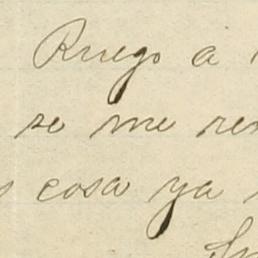 Ruego a
se me
cosa ya